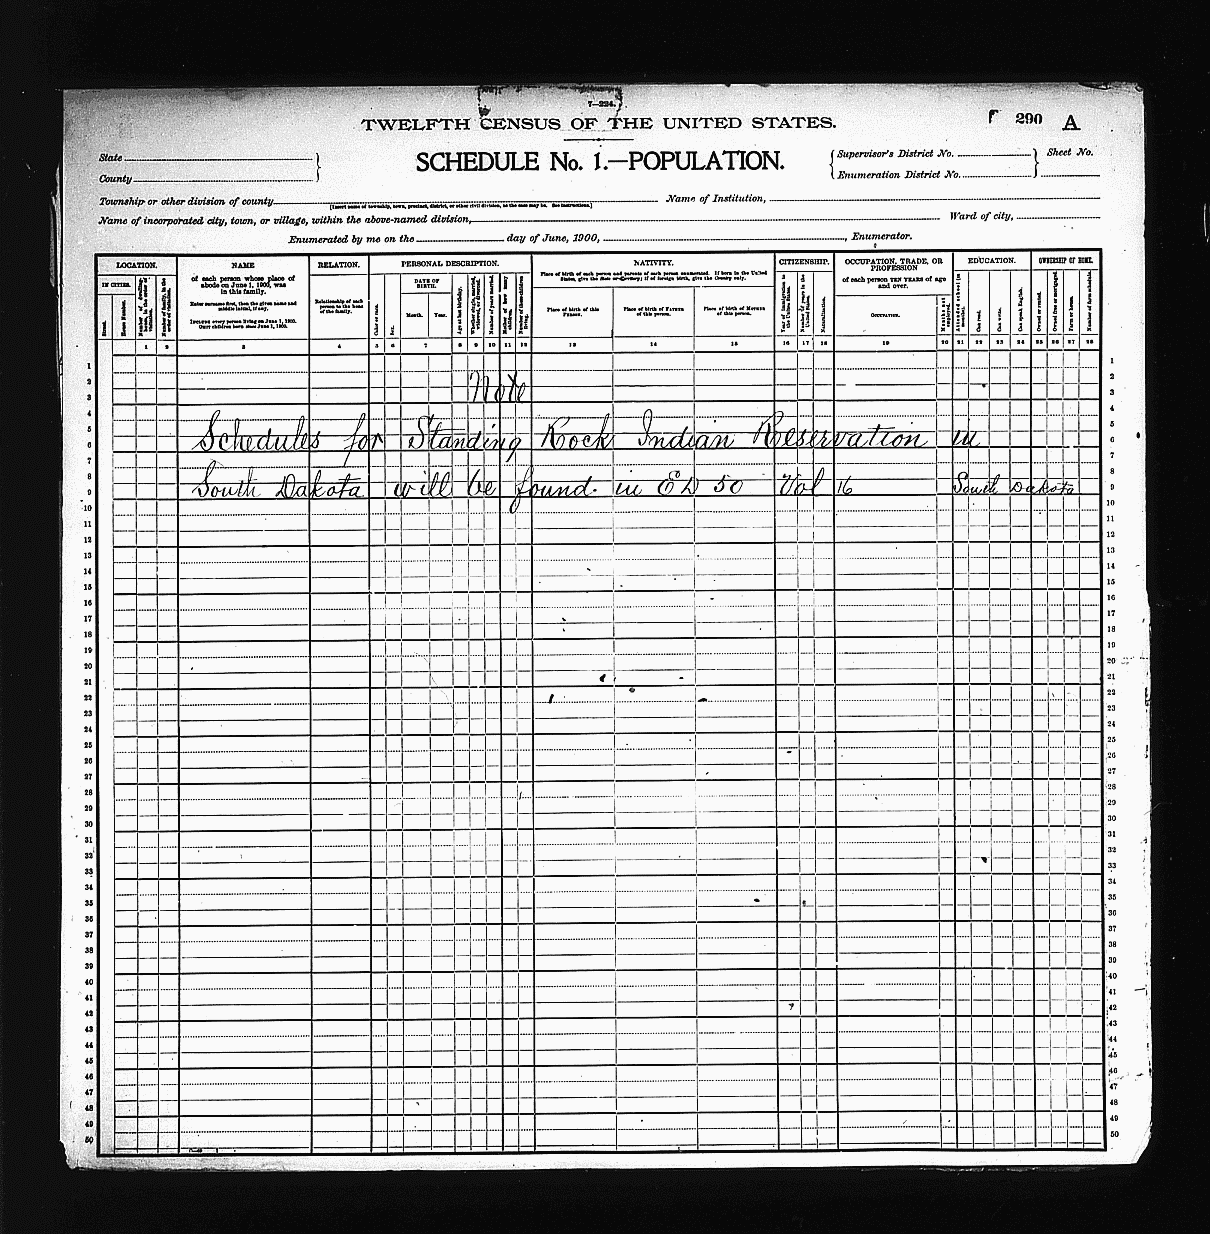 7—224.
TWELFTH CENSUS OF THE UNITED STATES.
290 A
SCHEDULE No. 1.—POPULATION.
State
County
Supervisor's District No.
Enumeration District No.
Sheet No.
Township or other division of county
[Insert name of township, town, precinct, district, or other civil division, as the case may be. See instructions.]
Name of Institution,
Name of incorporated city, town, or village, within the above-named division,
Ward of city,
Enumerated by me on the day of June, 1900, , Enumerator.
LOCATION. NAME RELATION. PERSONAL DESCRIPTION. NATIVITY. CITIZENSHIP. OCCUPATION, TRADE, OR PROFESSION EDUCATION. OWNERSHIP OF HOME.
IN CITIES.
Street.
House Number.
Number of dwelling-house, in the order of visitation.
Number of family, in the order of visitation.
of each person whose place of abode on June 1, 1900, was in this family.
Enter surname first, then the given name and middle initial, if any.
INCLUDE every person living on June 1, 1900.
OMIT children born since June 1, 1900.
Relationship of each person to the head of the family.
Color or race.
Sex.
DATE OF BIRTH.
Month. Year.
Age at last birthday.
Whether single, married, widowed, or divorced.
Number of years married.
Mother of how many children.
Number of these children living.
Place of birth of each person and parents of each person enumerated. If born in the United States, give the State or Territory; if of foreign birth, give the Country only.
Place of birth of this PERSON.
Place of birth of FATHER of this person.
Place of birth of MOTHER of this person.
Year of immigration to the United States.
Number of years in the United States.
Naturalization.
of each person TEN YEARS of age and over.
OCCUPATION.
Months not employed.
Attended school (in months).
Can read.
Can write.
Can speak English.
Owned or rented.
Owned free or mortgaged.
Farm or house.
Number of farm schedule.
1 2 3 4 5 6 7 8 9 10 11 12 13 14 15 16 17 18 19 20 21 22 23 24 25 26 27 28
1 1
2 2
Note
3 3
4 4
5 5
Schedules for Standing Rock Indian Reservation in
6 6
7 7
8 8
South Dakota will be found in ED 50 Vol 16 South Dakota
9 9
10 10
11 11
12 12
13 13
14 14
15 15
16 16
17 17
18 18
19 19
20 20
21 21
22 22
23 23
24 24
25 25
26 26
27 27
28 28
29 29
30 30
31 31
32 32
33 33
34 34
35 35
36 36
37 37
38 38
39 39
40 40
41 41
42 42
43 43
44 44
45 45
46 46
47 47
48 48
49 49
50 50